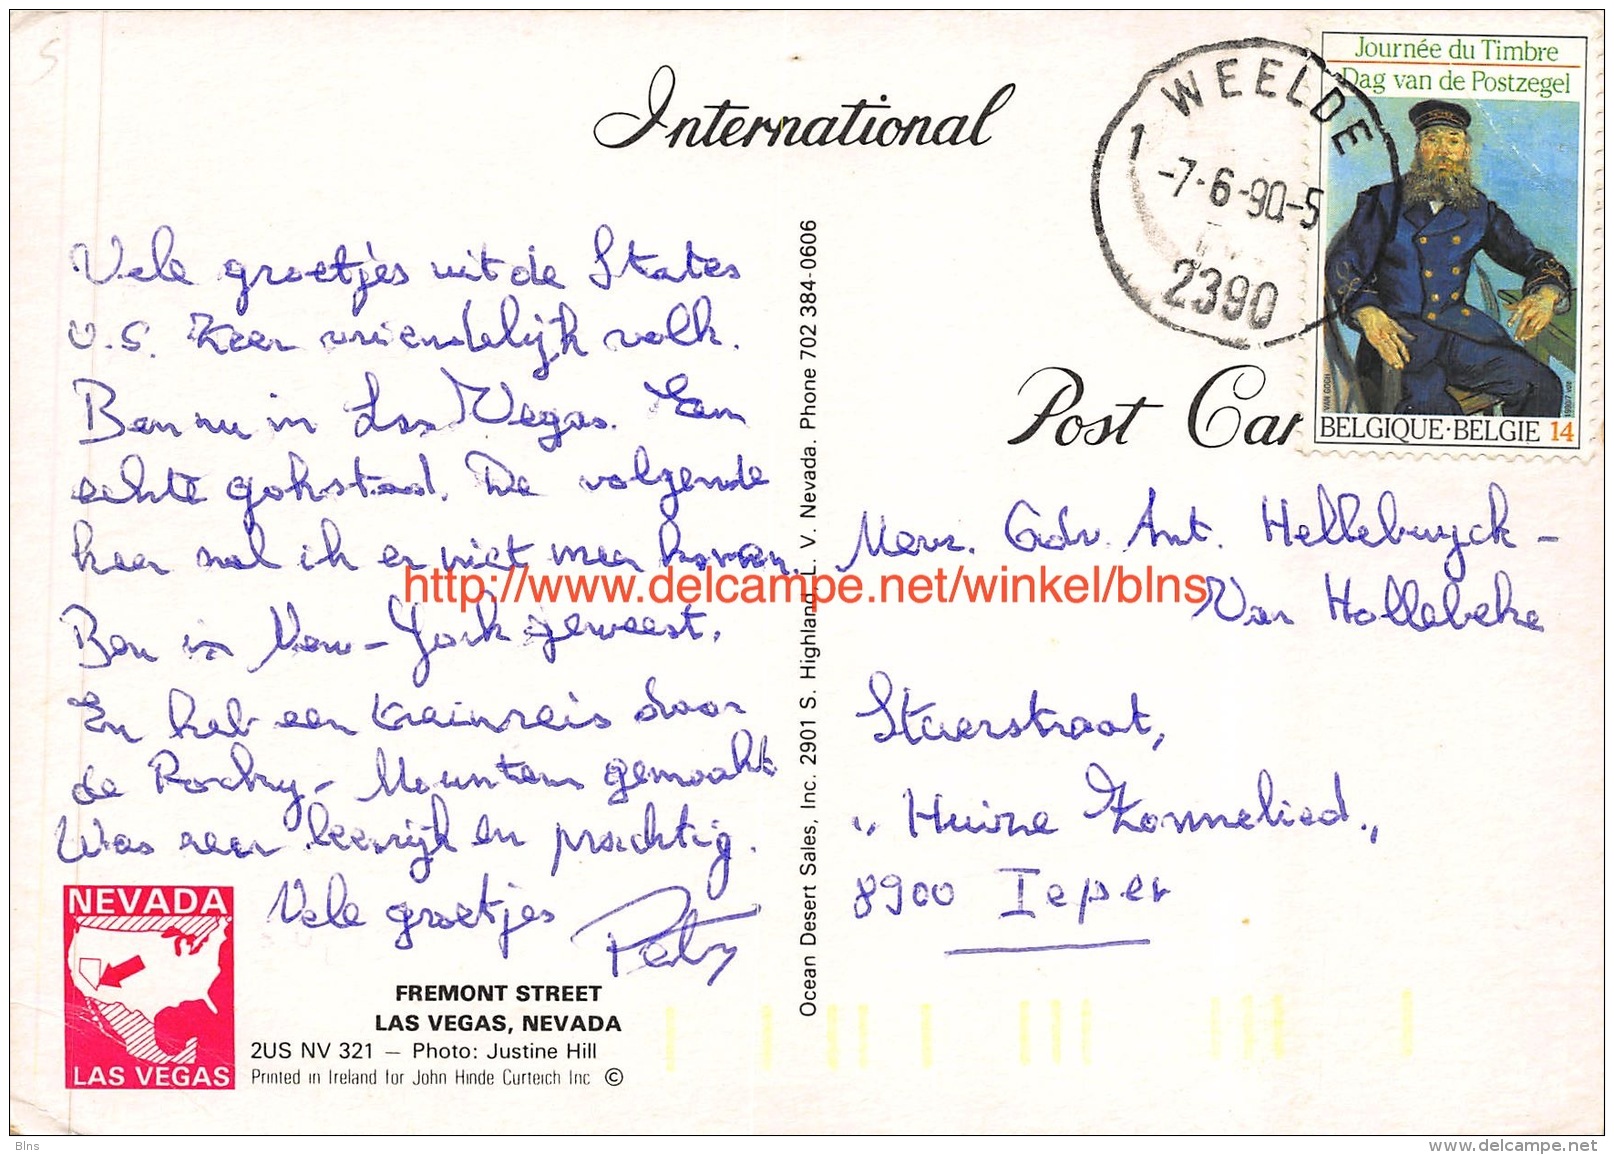 International
Journée du Timbre
Dag van de Postzegel
1 WEELDE
-7-6-90-5
2390
VAN GOGH
BELGIQUE·BELGIE 14
Post Car
Vele groetjes uit de States
U.S. Zeer vriendelijk volk.
Ben nu in Las Vegas. Een
echte gokstad. De volgende
keer zal ik er niet meer komen.
Ben in New-York geweest.
En heb een treinreis door
de Rocky-Mountens gemaakt
Was zeer leerrijk en prachtig.
Vele groetjes
Ocean Desert Sales, Inc. 2901 S. Highland, L. V. Nevada. Phone 702 384-0606
Mevr. Adv. Ant. Hellebuyck -
Van Hollebeke
Staerstraat,
„ Huize Zonnelied „
8900 Ieper
http://www.delcampe.net/winkel/blns
NEVADA
LAS VEGAS
FREMONT STREET
LAS VEGAS, NEVADA
2US NV 321 — Photo: Justine Hill
Printed in Ireland for John Hinde Curteich Inc ©
Blns
www.delcampe.net